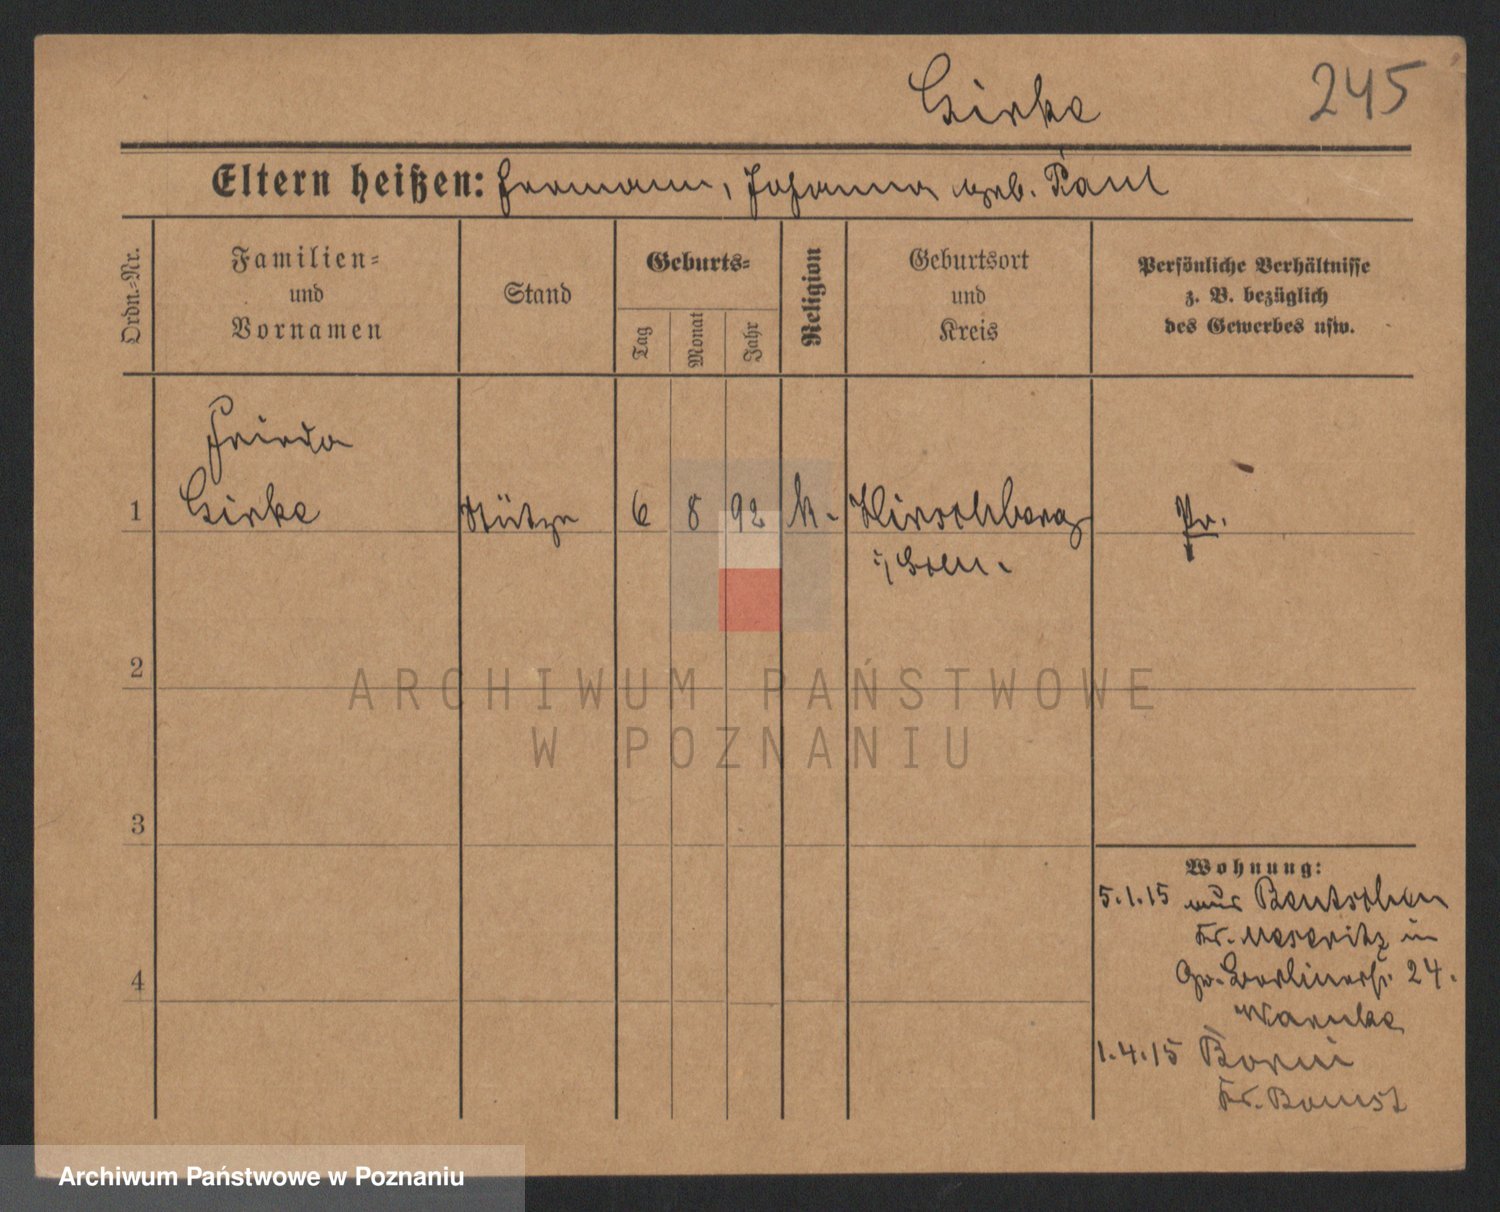 Girke
245
Eltern heißen: Hermann, Johanna geb. Paul
Ordn.-Nr.
Familien-
und
Vornamen
Stand
Geburts-
Tag
Monat
Jahr
Religion
Geburtsort
und
Kreis
Persönliche Verhältnisse
z. B. bezüglich
des Gewerbes usw.
Frieda
1 Girke Stütze 6 8 92 k. Hirschberg Pr.
i/Schl.
2
3
4
Wohnung:
5.1.15 aus Bentschen
Kr. Meseritz in
Gr. Berlinerstr. 24.
Warnke
1.4.15
Kr. Bomst
ARCHIWUM PAŃSTWOWE
W POZNANIU
Archiwum Państwowe w Poznaniu